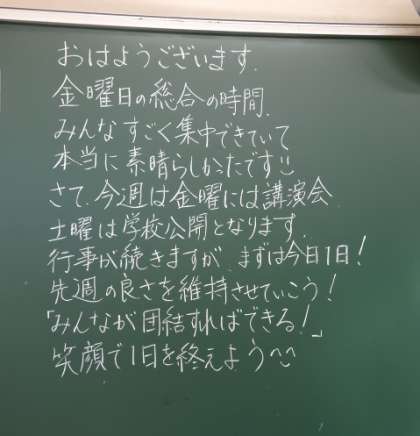 おはようございます.
金曜日の総合の時間.
みんなすごく集中できていて
本当に素晴らしかったです
さて、今週は金曜には講演会.
土曜は学校公開となります.
行事が続きますが、まずは今日1日!
先週の良さを維持させていこう!
「みんなが団結すればできる!」
笑顔で1日を終えよう^^